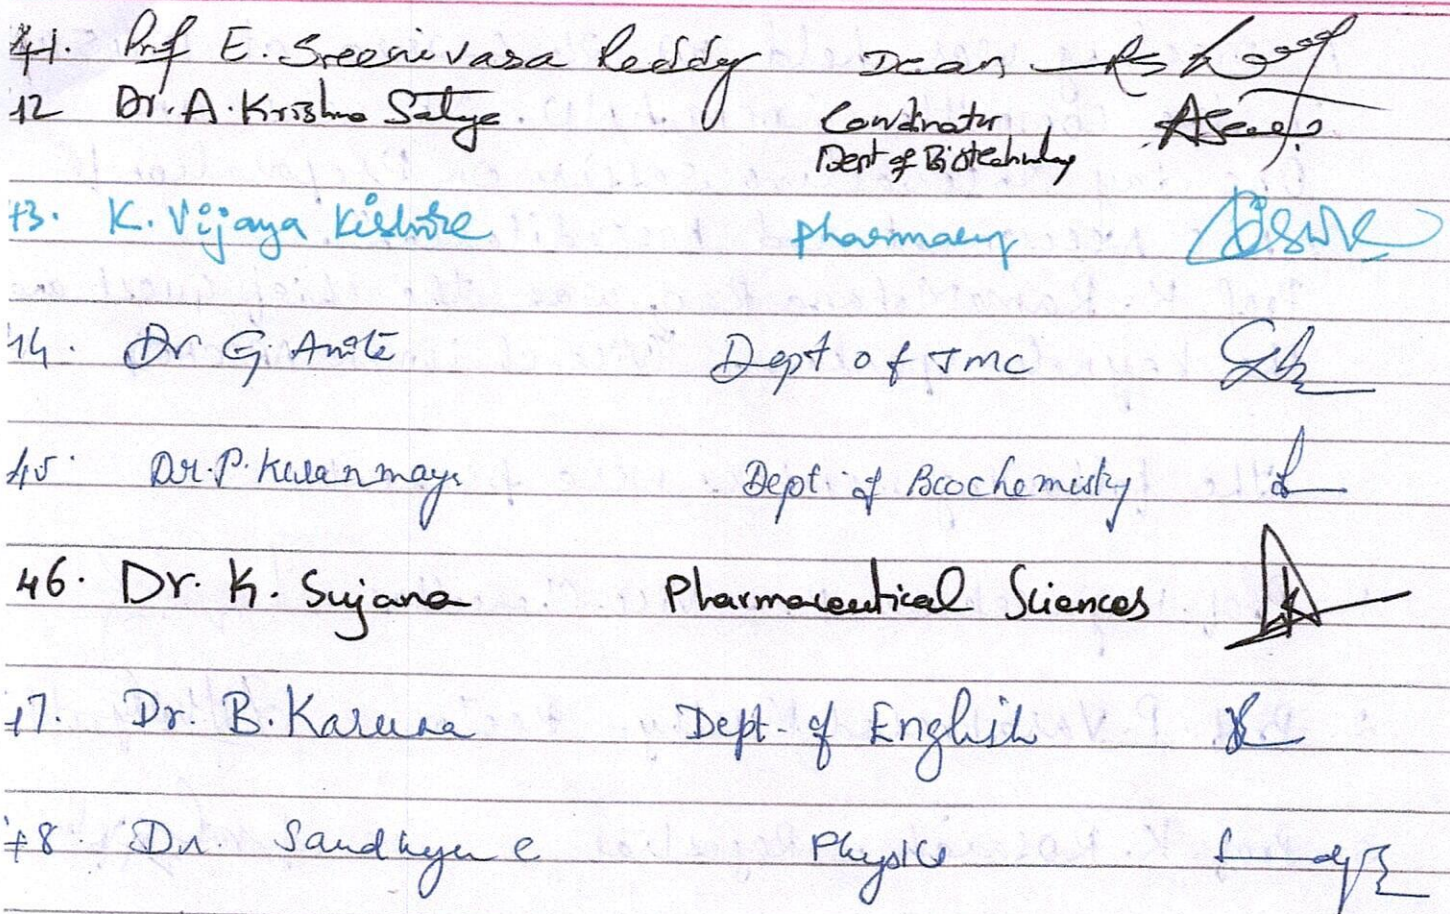 41. Prof E. Sreenivasa Reddy Dean
42 Dr. A. Krishna Satya Coordinator
Dept of Biotechnology
43. K. Vijaya Kishore pharmacy Kishore
44. Dr G. Anita Dept of JMC
45. Dr. P. Kiranmayi Dept. of Biochemistry
46. Dr. K. Sujana Pharmaceutical Sciences
47. Dr. B. Karuna Dept. of English
48. Dr. Sandhya C Physics